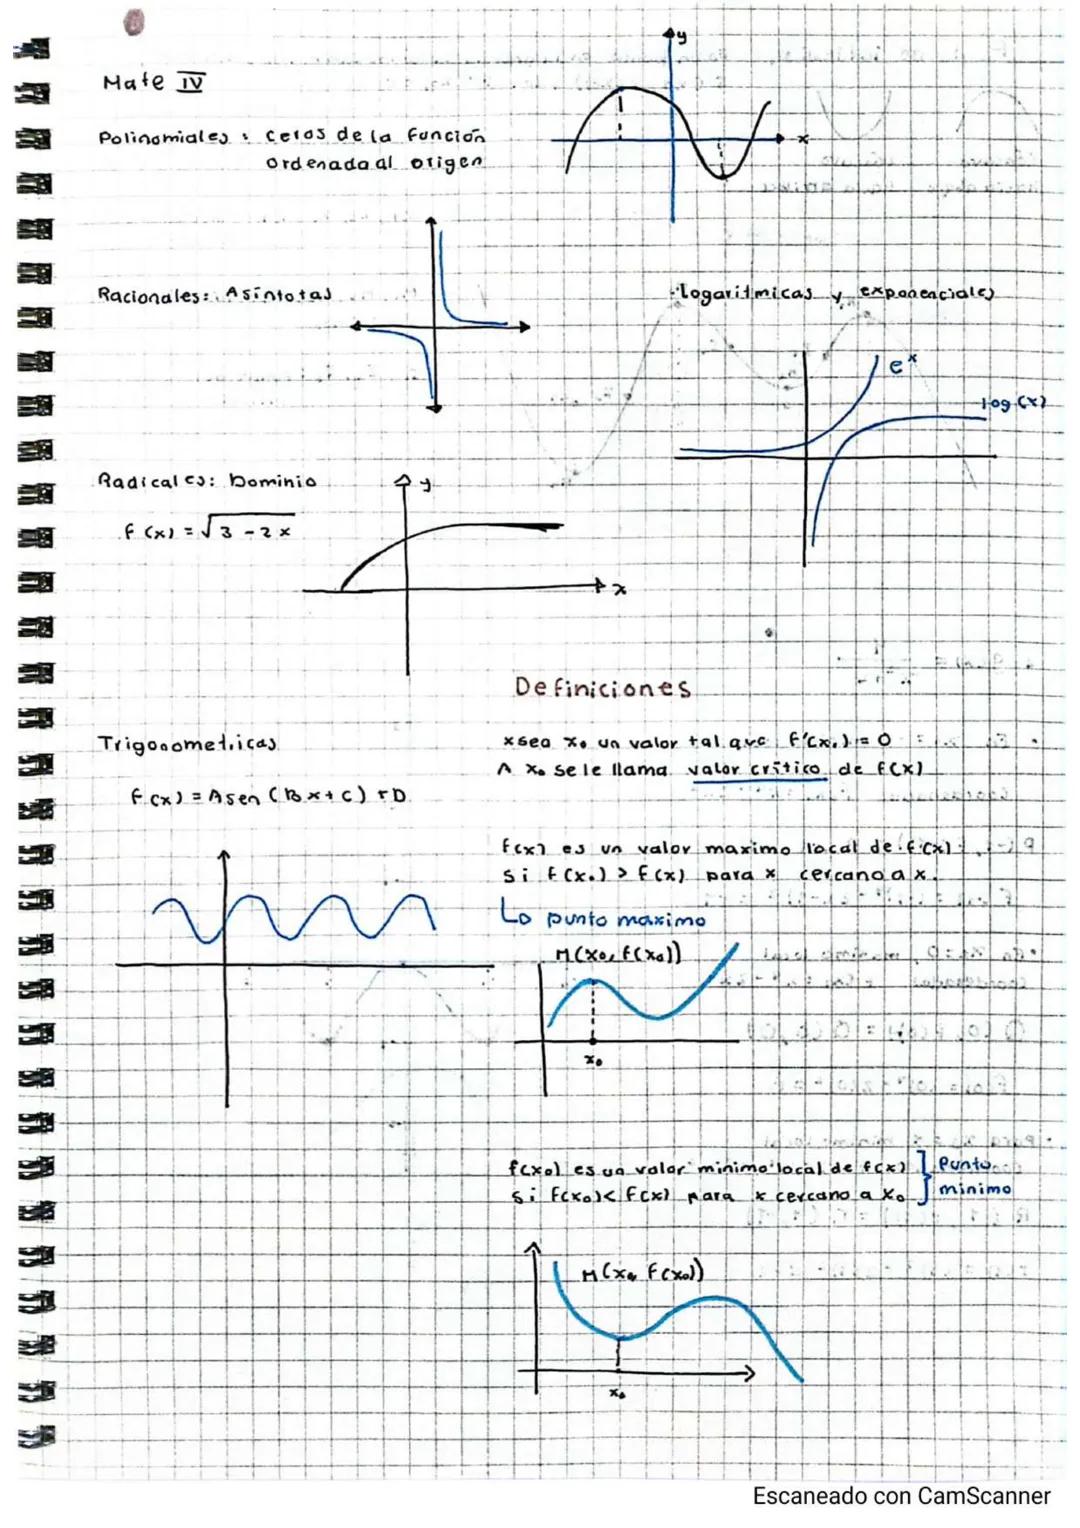 Mate IV
Polinomiales : Ceros de la función
Ordenada al origen
y
x
Racionales: Asíntotas
logarítmicas y exponenciales
e^x
log(x)
Radicales: Dominio
f(x) = √3 - 2x
y
x
Definiciones
Trigonometricas
f(x) = A sen (Bx + C) + D
x sea x₀ un valor tal que f'(x₀) = 0
A x₀ se le llama valor crítico de f(x)
f(x) es un valor maximo local de f(x)
si f(x₀) > f(x) para x cercano a x.
Lo punto maximo
M(x₀, f(x₀))
x₀
f(x₀) es un valor minimo local de f(x)
si f(x₀) < f(x) para x cercano a x₀
Punto
minimo
M(x₀, f(x₀))
x₀
Escaneado con CamScanner